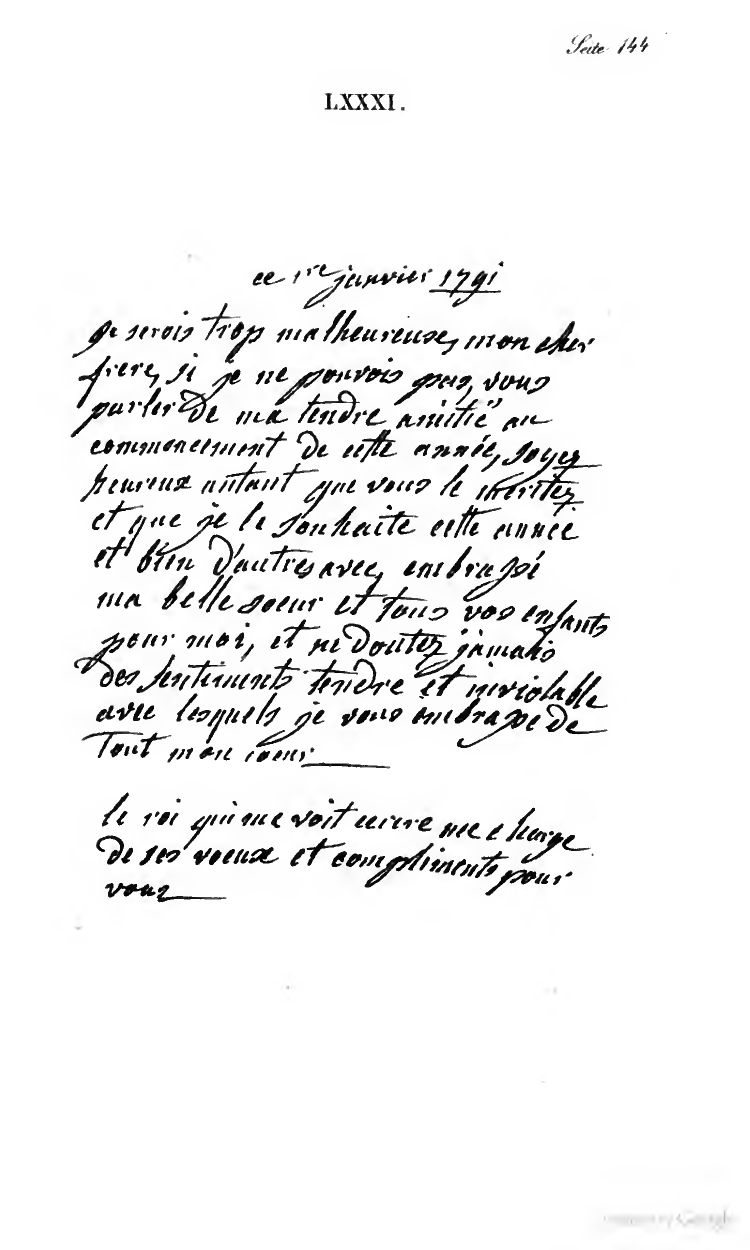 Seite 144
LXXXI.
ce 1re janvier 1791
je serois trop malheureuse, mon cher
frere, si je ne pouvois pas, vous
parler de ma tendre amitié au
commencement de cette année, soyez
heureux autant que vous le meritez
et que je le souhaite cette année
et bien d'autres avec, embrassé
ma belle soeur et tous vos enfants
pour moi, et ne doutez jamais
des sentiments tendre et inviolable
avec lesquels je vous embrasse de
tout mon coeur
le roi qui me voit ecrire me charge
de ses voeux et compliments pour
vous
Google